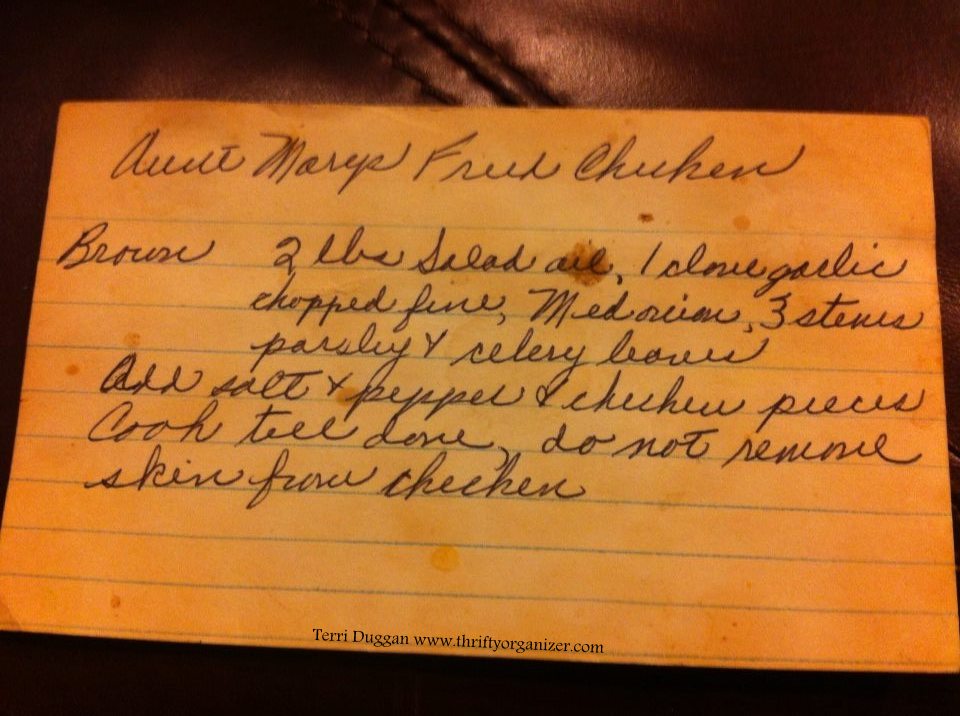 Aunt Marys Fried Chicken
Brown 2 lbs Salad oil, 1 clove garlic
chopped fine, Med onion, 3 stems
parsley & celery leaves
Add salt & pepper & chicken pieces
Cook till done, do not remove
skin from chicken
Terri Duggan www.thriftyorganizer.com